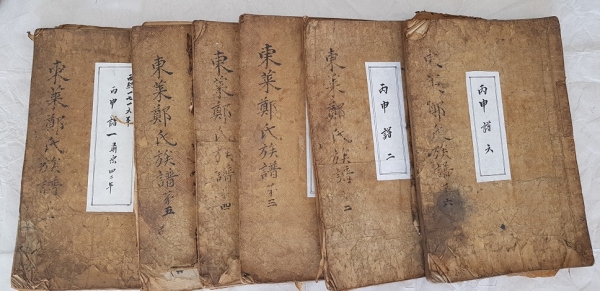 東萊鄭氏族譜
丙申譜一
東萊鄭氏族譜 第五
東萊鄭氏族譜 四
東萊鄭氏族譜 第三
東萊鄭氏族譜 二
丙申譜 二
東萊鄭氏族譜 六
丙申譜 六